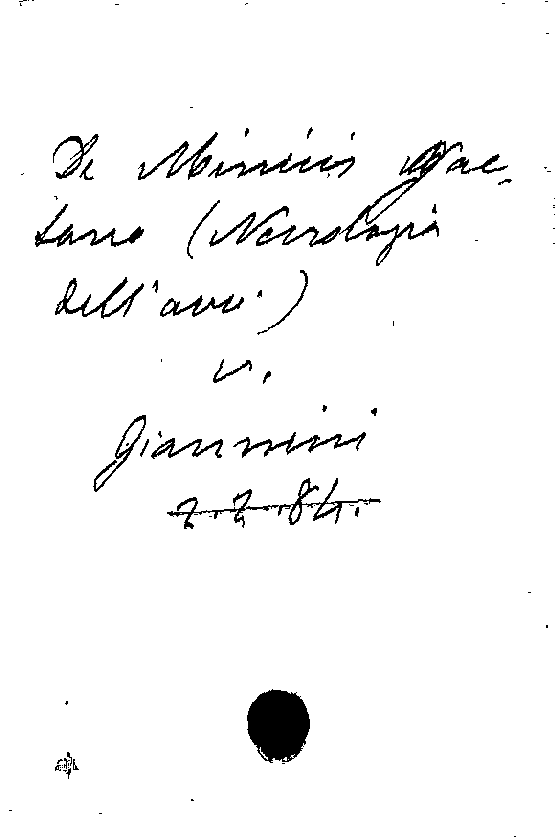 De Minicis Gae-
tano (Necrologia
dell'avv.)
v.
Giannini
2.2.84.